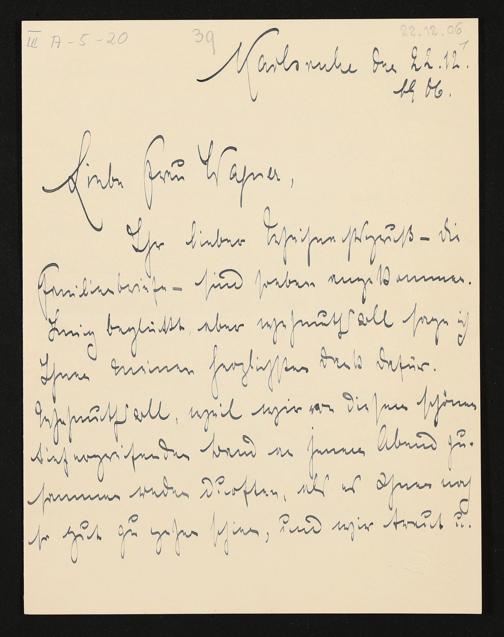 III A-5-20 39 22.12.06
Karlsruhe den 22.12.
1906.
Liebe Frau Wagner,
Ihr lieber Weihnachtsgruß – die
Familienbriefe – sind soeben angekommen.
Innig beglückt aber wehmuthsvoll sage ich
Ihnen meinen herzlichsten Dank dafür.
Wehmuthsvoll, weil wir von diesem schönen
tiefergreifenden Band an jenem Abend zu-
sammen reden durften, als es Ihnen noch
so gut zu gehen schien, und wir